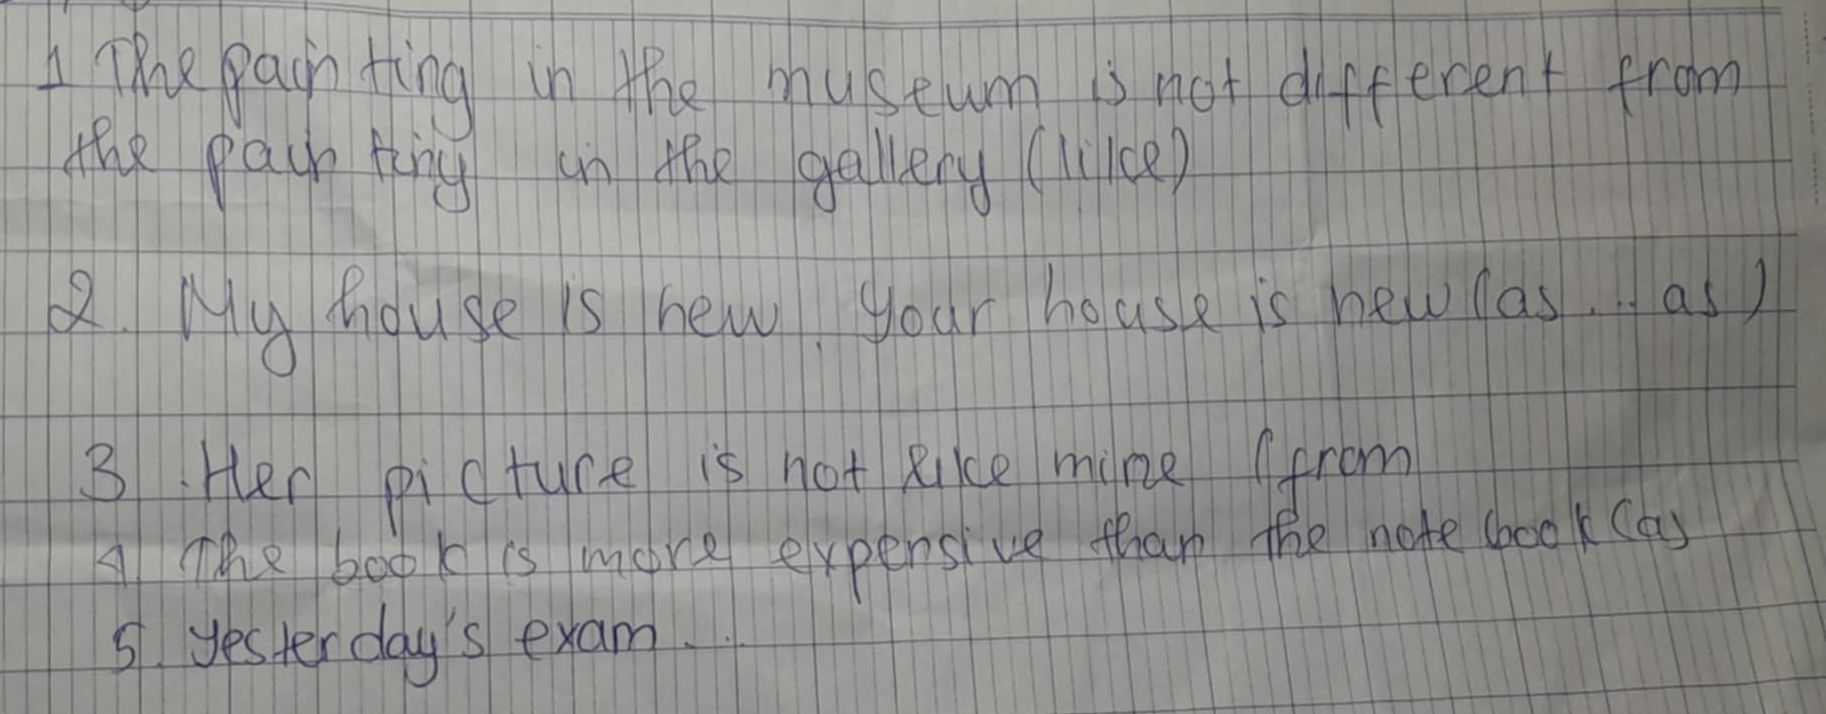 1 The painting in the museum is not different from
the painting in the gallery (like)
2. My house is new. Your house is new (as... as)
3. Her picture is not like mine (from
4 The book is more expensive than the note book (as
5. Yesterday's exam...